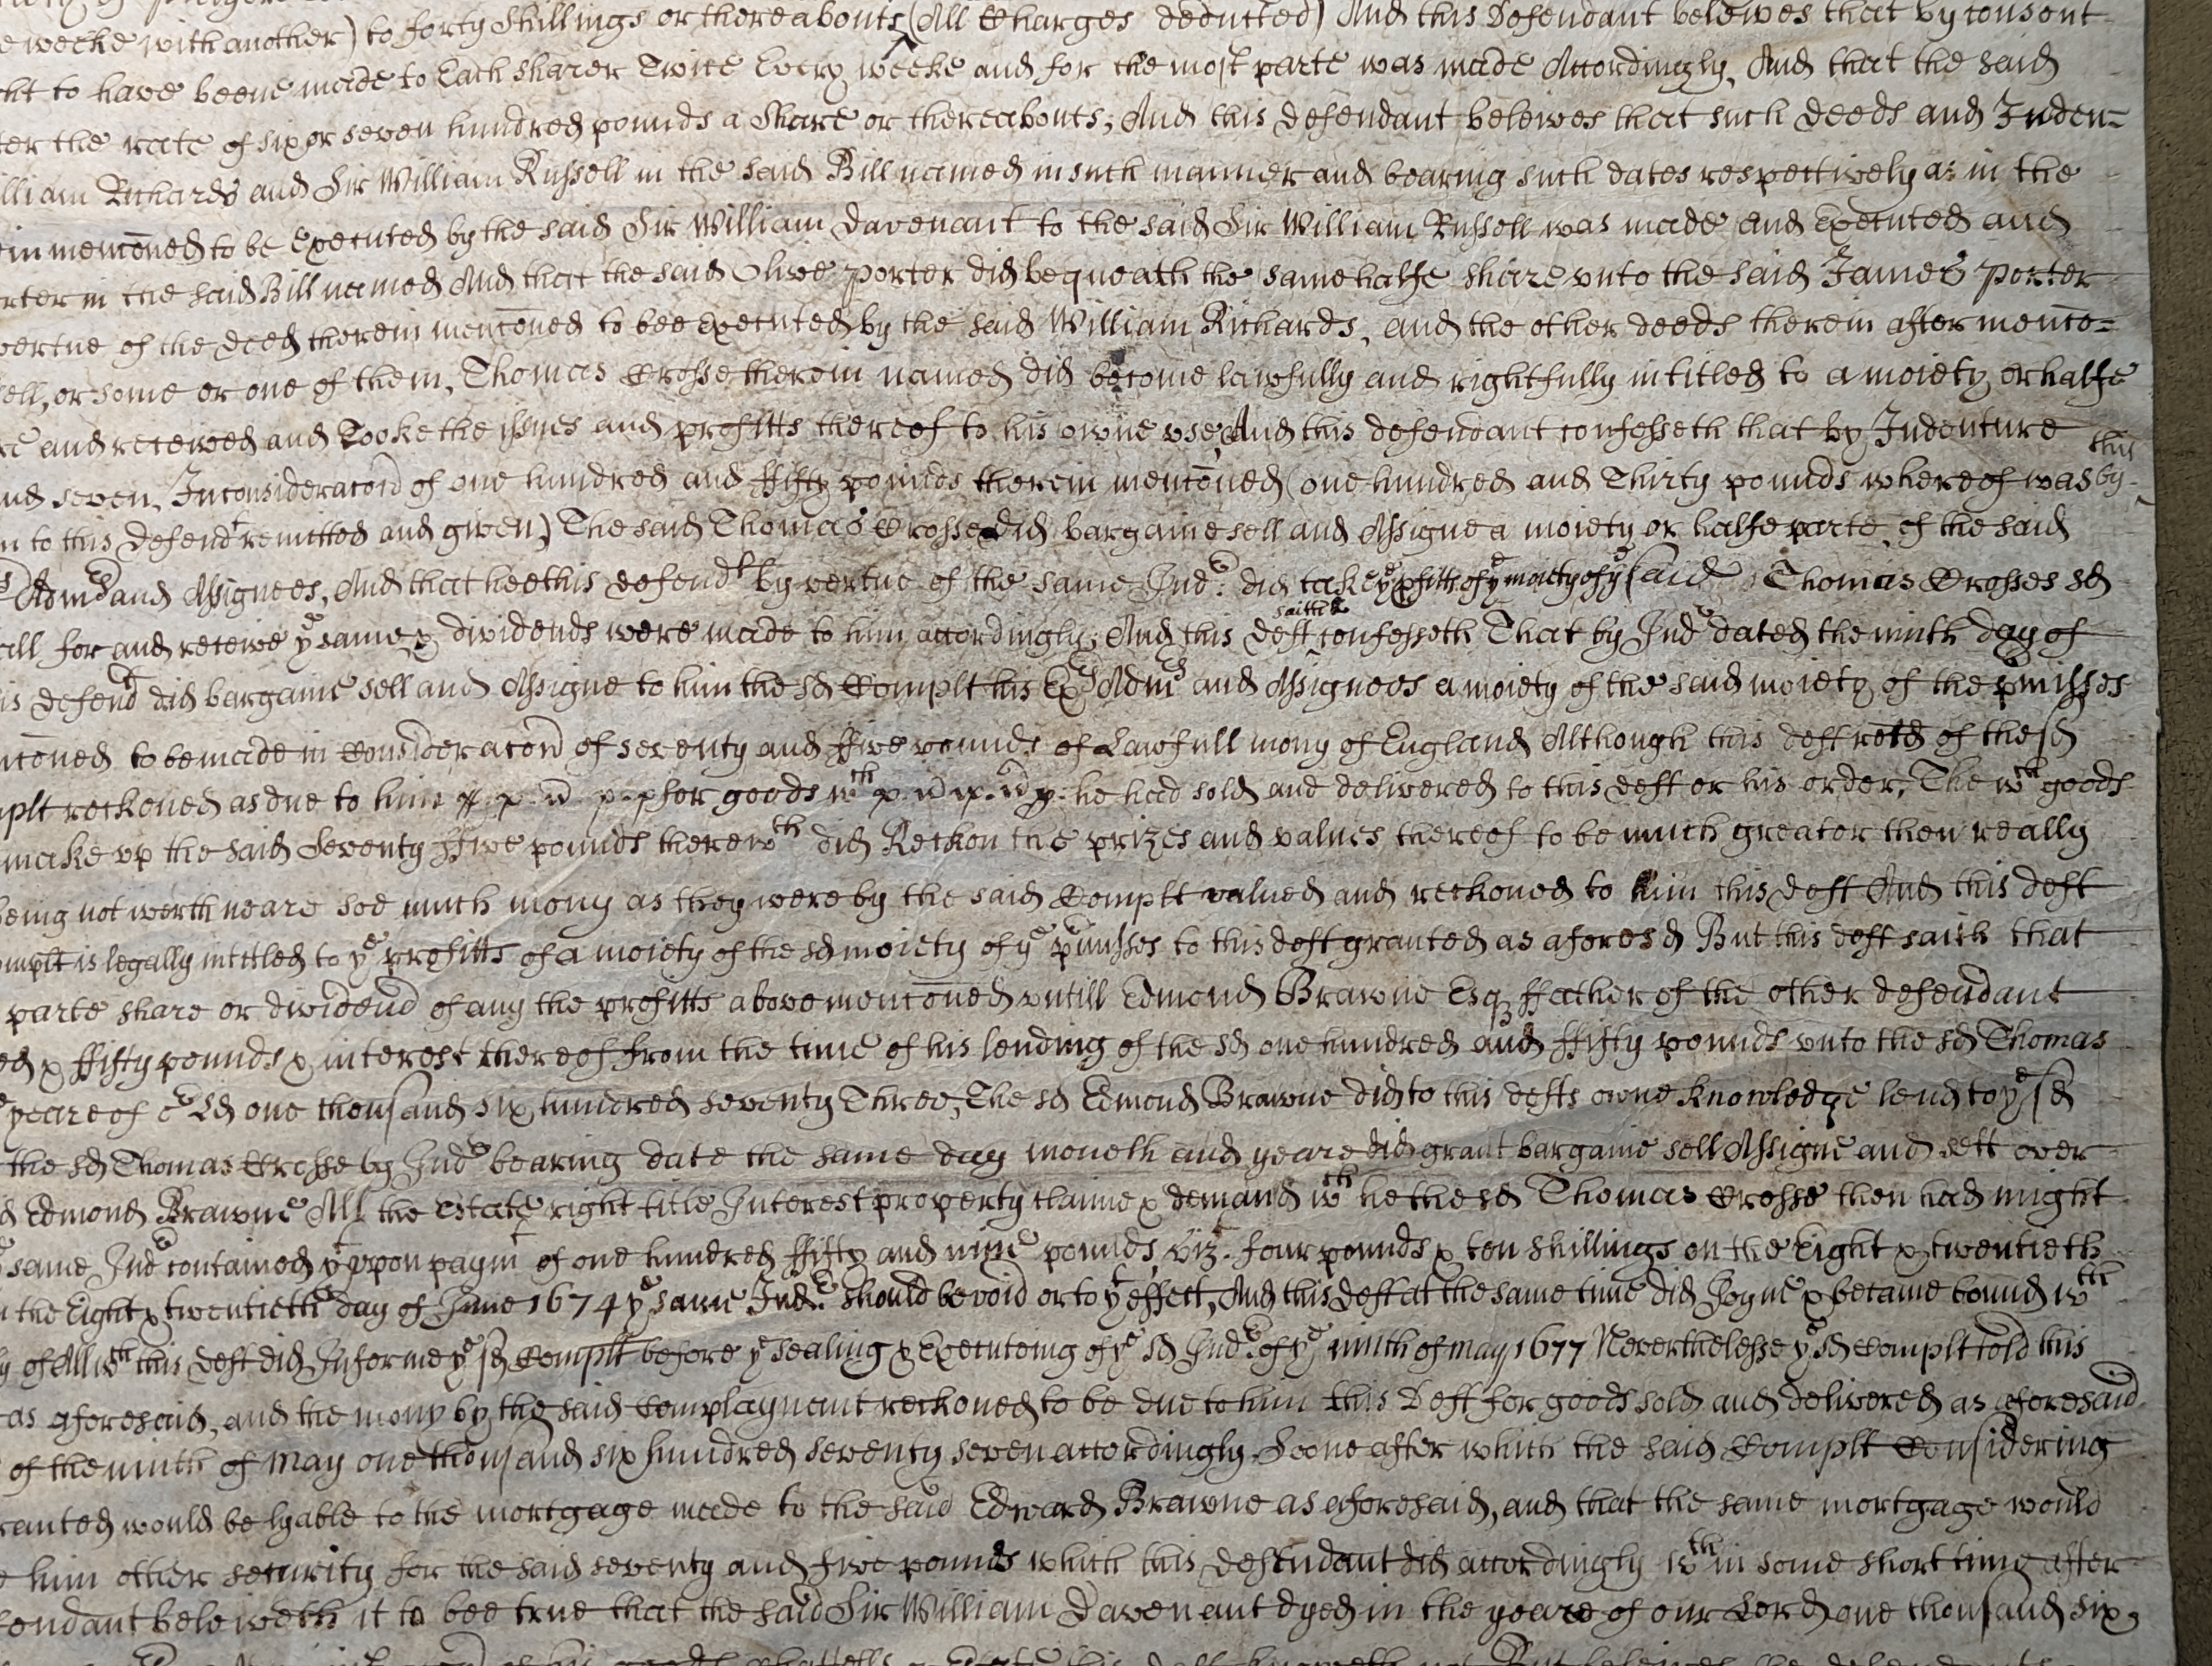 weeke with another) to forty Shillings or thereabouts (All Charges deducted) And this Defendant beleives that by consent
to have beene made to Each sharer Twice Every weeke and for the most parte was made Accordingly, And that the said
the rate of six or seven hundred pounds a Share or thereabouts; And this defendant beleives that such deeds and Inden=
lliam Richards and Sir William Russell in the said Bill named in such manner and bearing such dates respectively as in the
in mencōned to be Executed by the said Sir William Davenant to the said Sir William Russell was made and Executed and
rter in the said Bill named And that the said Olive porter did bequeath the same halfe share vnto the said James porter
vertue of the deed therein mencōned to bee Executed by the said William Richards, and the other deeds therein after menco=
ell, or some or one of them, Thomas Crosse therein named did become lawfully and rightfully intitled to a moiety or halfe
and received and Tooke the issues and profitts thereof to his owne vse, And this defendant confesseth that by Indenture
this
nd seven, In consideracon of one hundred and ffifty pounds therein mencōned (one hundred and Thirty pounds whereof was by
to this Defendt remitted and given) The said Thomas Crosse did bargaine sell and Assigne a moiety or halfe parte of the said
Adms and Assignees, And that hee this defendt by vertue of the same Inde: did take ye pfitts of ye moiety of ye said Thomas Crosses sd
saith &
all for and receive ye same & dividends were made to him accordingly; And this deft confesseth That by Inde dated the ninth day of
is defendt did bargaine sell and Assigne to him the sd Complt his Exs Adms and Assignees a moiety of the said moiety of the pmisses
ncōned to be made in Consideracon of seventy and ffive pounds of Lawfull mony of England Although this deft of the sd
plt reckoned as due to him for goods wth he had sold and delivered to this deft or his order, The wch goods
make vp the said Seventy ffive pounds therewth did Reckon the prizes and values thereof to be much greater then really
being not worth neare soe much mony as they were by the said Complt valued and reckoned to him this deft And this deft
omplt is legally intitled to ye profitts of a moiety of the sd moiety of ye pmisses to this deft granted as aforesd But this deft saith that
parte share or dividend of any the profitts above mencōned vntill Edmond Brawne Esq ffather of the other defendant
ed & ffifty pounds & interest thereof from the time of his lending of the sd one hundred and ffifty pounds vnto the sd Thomas
yeare of or Ld one thousand six hundred seventy Three, The sd Edmond Brawne did to this defts owne knowledge lend to ye sd
the sd Thomas Crosse by Inde bearing date the same day moneth and yeare did grant bargaine sell Assigne and sett over
d Edmond Brawne All the Estate right title Interest property claime & demand wch he the sd Thomas Crosse then had might
same Inde contained yt vpon paymt of one hundred ffifty and nine pounds, viz. four pounds & ten shillings on the Eight & twentieth
the Eight & twentieth day of June 1674 ye same Inde: should be void or to yt effect, And this deft at the same time did Joyne & became bound wth
of All wch this deft did Informe ye sd Complt before ye sealing & Executeing of ye sd Inde: of ye ninth of may 1677 Neverthelesse ye sd Complt told this
as aforesaid, and the mony by the said Complaynant reckoned to be due to him this Deft for goods sold and delivered as aforesaid
of the ninth of May one thousand six hundred seventy seven accordingly Soone after which the said Complt Considering
ranted would be lyable to the mortgage made to the said Edward Brawne as aforesaid, and that the same mortgage would
him other security for the said seventy and five pounds which this defendant did accordingly wthin some short time after
endant beleiveth it to bee true that the said Sir William Davenant dyed in the yeare of our Lord one thousand six